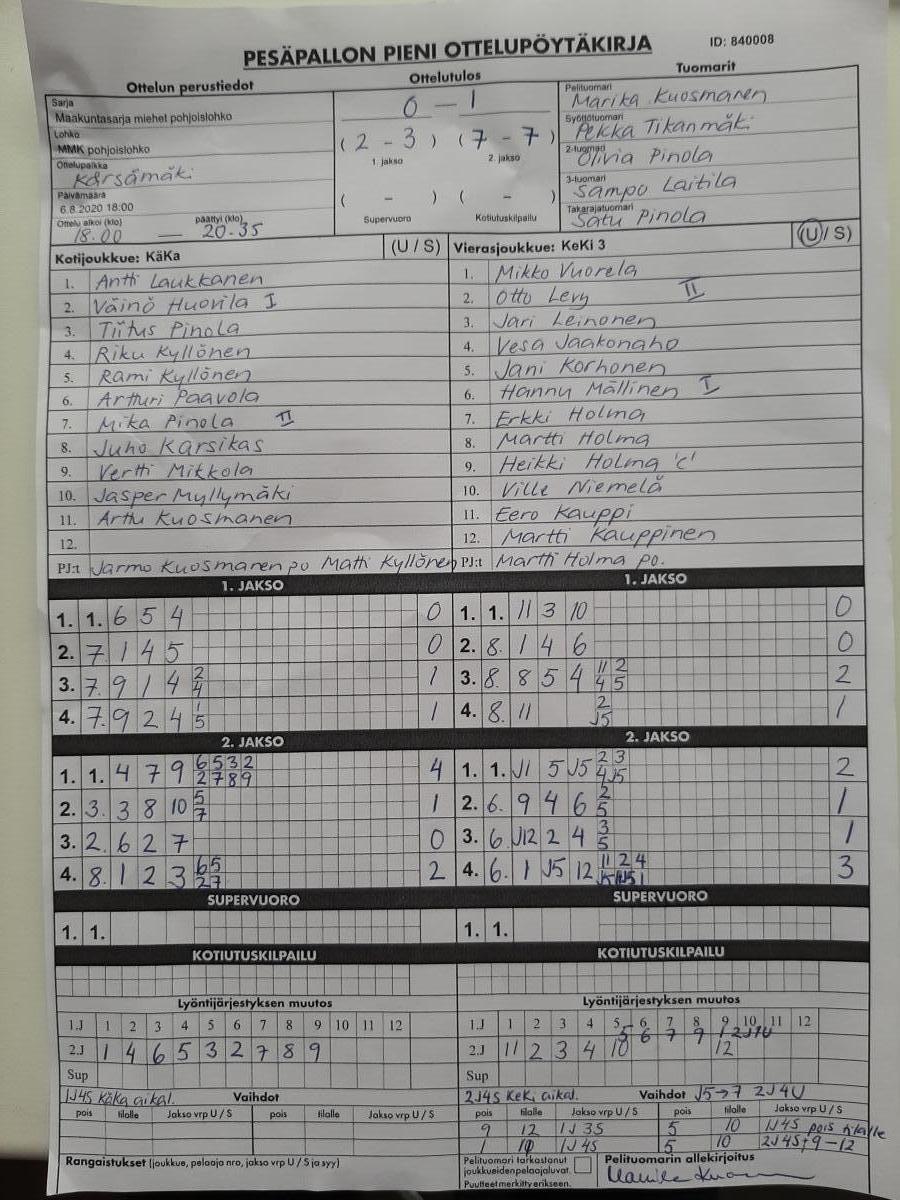 PESÄPALLON PIENI OTTELUPÖYTÄKIRJA
ID: 840008
Ottelun perustiedot
Ottelutulos
Tuomarit
Sarja
Maakuntasarja miehet pohjoislohko
Lohko
MMK pohjoislohko
Ottelupaikka
Kärsämäki
Päivämäärä
6.8.2020 18:00
Ottelu alkoi (klo) päättyi (klo)
18.00 — 20.35
0 — 1
(2 - 3) (7 - 7)
1. jakso 2. jakso
( - ) ( - )
Supervuoro Kotiutuskilpailu
Pelituomari
Marika Kuosmanen
Syöttötuomari
Pekka Tikanmäki
2-tuomari
Olivia Pinola
3-tuomari
Sampo Laitila
Takarajatuomari
Satu Pinola
Kotijoukkue: KäKa (U / S)
1. Antti Laukkanen
2. Väinö Huovila I
3. Tiitus Pinola
4. Riku Kyllönen
5. Rami Kyllönen
6. Artturi Paavola
7. Mika Pinola II
8. Juho Karsikas
9. Vertti Mikkola
10. Jasper Myllymäki
11. Arttu Kuosmanen
12.
PJ:t Jarmo Kuosmanen po Matti Kyllönen
Vierasjoukkue: KeKi 3 (U / S)
1. Mikko Vuorela
2. Otto Levy II
3. Jari Leinonen
4. Vesa Jaakonaho
5. Jani Korhonen
6. Hannu Mällinen I
7. Erkki Holma
8. Martti Holma
9. Heikki Holma 'c'
10. Ville Niemelä
11. Eero Kauppi
12. Martti Kauppinen
PJ:t Martti Holma po.
1. JAKSO
1. 1. 6 5 4 0
2. 7. 1 4 5 0
3. 7. 9 1 4 2/4 1
4. 7. 9 2 4 1/5 1
1. JAKSO
1. 1. 11 3 10 0
2. 8. 1 4 6 0
3. 8. 8 5 4 11/4 2/5 2
4. 8. 11 2/J5 1
2. JAKSO
1. 1. 4 7 9 6/2 5/7 3/8 2/9 4
2. 3. 3 8 10 5/7 1
3. 2. 6 2 7 0
4. 8. 1 2 3 6/2 5/7 2
2. JAKSO
1. 1. J1 5 J5 2/4 3/J5 2
2. 6. 9 4 6 2/5 1
3. 6. J12 2 4 3/5 1
4. 6. 1 J5 12 11 2 4 3
SUPERVUORO
1. 1.
SUPERVUORO
1. 1.
KOTIUTUSKILPAILU
KOTIUTUSKILPAILU
Lyöntijärjestyksen muutos
1.J 1 2 3 4 5 6 7 8 9 10 11 12
2.J 1 4 6 5 3 2 7 8 9
Sup
Lyöntijärjestyksen muutos
1.J 1 2 3 4 5 6 7 8 9 10 11 12
5 6 7 9
2.J 11 2 3 4 10 12
Sup
1J4S KäKa aikal. Vaihdot
pois tilalle Jakso vrp U / S pois tilalle Jakso vrp U / S
2J4S KeKi aikal. Vaihdot J5→7 2J4U
pois tilalle Jakso vrp U / S pois tilalle Jakso vrp U / S
9 12 1J 3S 5 10 1J4S pois tilalle
1 10 1J 4S 5 10 2J4S+9-12
Rangaistukset (joukkue, pelaaja nro, jakso vrp U / S ja syy)
Pelituomari tarkastanut
joukkueiden pelaajaluvat.
Puutteet merkitty erikseen.
Pelituomarin allekirjoitus